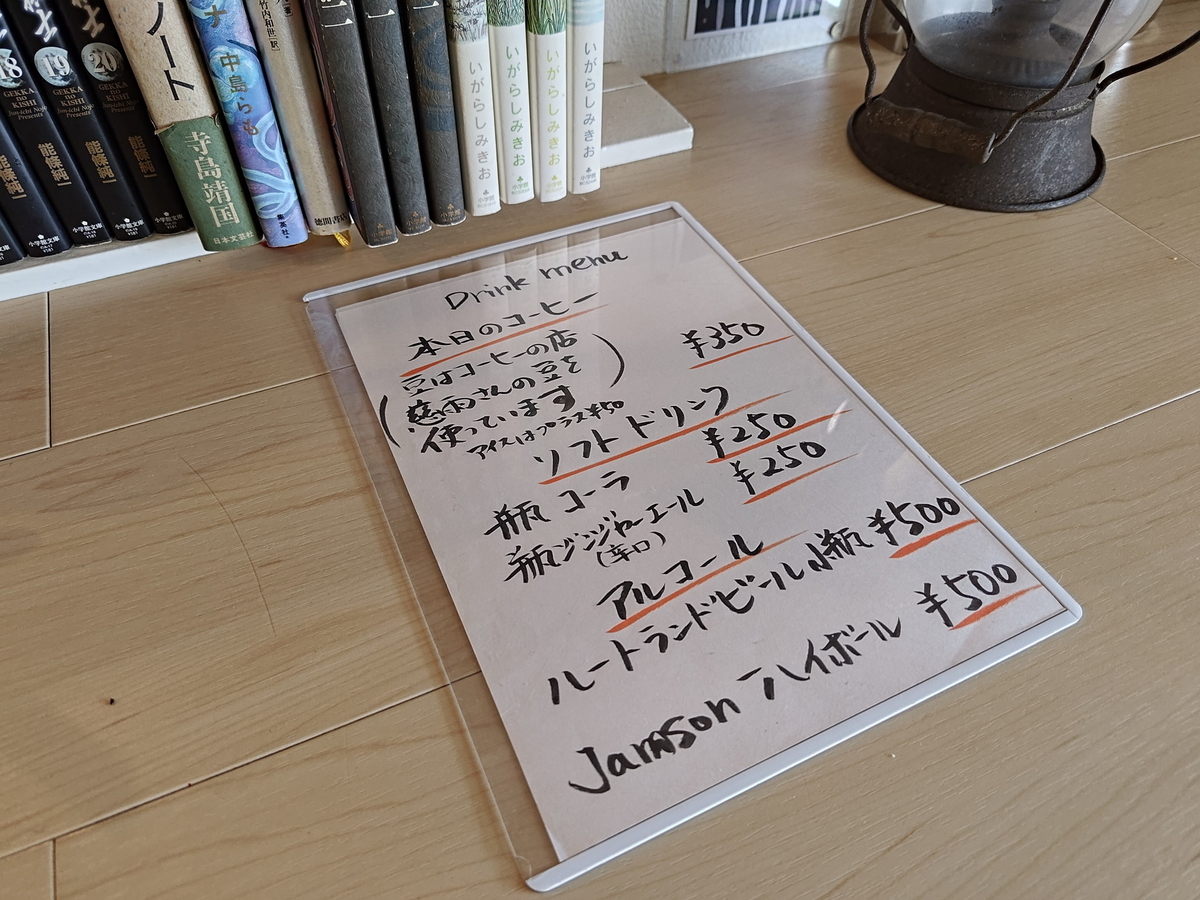 18
GEKKA
NO
KISHI
能條純一
小学館文庫
19
GEKKA
NO
KISHI
Jun-ichi Nojo
Presents
能條純一
小学館文庫
20
GEKKA
NO
KISHI
Jun-ichi Nojo
Presents
能條純一
小学館文庫
能條純一
小学館文庫
ノート
寺島靖国
日本文芸社
ナ
中島らも
集英社
竹内和世 訳
徳間書店
いがらしみきお
小学館
いがらしみきお
小学館
いがらしみきお
小学館
いがらしみきお
小学館
Drink menu
本日のコーヒー
(豆はコーヒーの店 ¥350
慈雨さんの豆を
使っています)
アイスはプラス¥50
ソフトドリンク
瓶コーラ ¥250
瓶ジンジャーエール ¥250
(辛口)
アルコール
ハートランドビール小瓶 ¥500
Jamson ハイボール ¥500